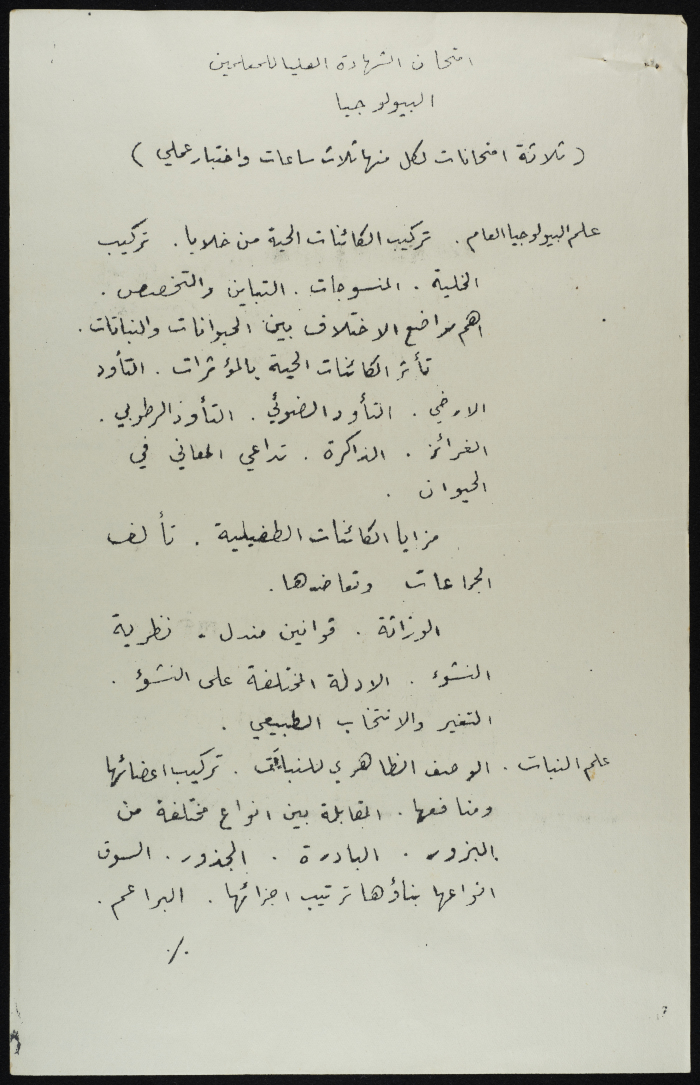 امتحان الشهادة العليا للمعلمين
البيولوجيا
( ثلاثة امتحانات لكل منها ثلاث ساعات واختبار عملي )
علم البيولوجيا العام . تركيب الكائنات الحية من خلايا . تركيب
الخلية . المنسوجات . التباين والتخصص .
اهم مواضع الاختلاف بين الحيوانات والنباتات .
تأثر الكائنات الحية بالمؤثرات . التأود
الارضي . التأود الضوئي . التأود الرطوبي .
الغرائز . الذاكرة . تداعي المعاني في
الحيوان .
مزايا الكائنات الطفيلية . تألف
الجماعات وتعاضدها .
الوراثة . قوانين مندل . نظرية
النشوء . الادلة المختلفة على النشوء .
التغير والانتخاب الطبيعي .
علم النبات . الوصف الظاهري للنبات . تركيب اعضائها
ومنافعها . المقابلة بين انواع مختلفة من
البزور . البادرة . الجذور . السوق
انواعها بناؤها ترتيب اجزائها . البراعم .
./.